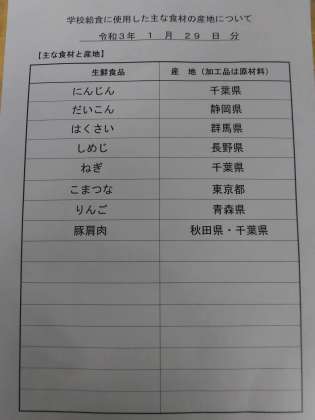 学校給食に使用した主な食材の産地について
令和3年 1 月 29 日 分
【主な食材と産地】
生鮮食品 産 地（加工品は原材料）
にんじん 千葉県
だいこん 静岡県
はくさい 群馬県
しめじ 長野県
ねぎ 千葉県
こまつな 東京都
りんご 青森県
豚肩肉 秋田県・千葉県